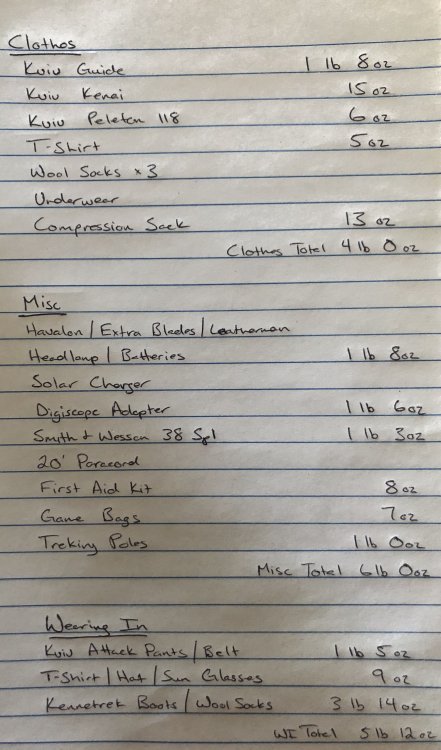 Clothes
Kuiu Guide 1 lb 8 oz
Kuiu Kenai 15 oz
Kuiu Peleton 118 6 oz
T-Shirt 5 oz
Wool Socks x 3
Underwear
Compression Sack 13 oz
Clothes Total 4 lb 0 oz
Misc
Havalon / Extra Blades / Leatherman
Headlamp / Batteries 1 lb 8 oz
Solar Charger
Digiscope Adapter 1 lb 6 oz
Smyth & Wesson 38 Spl 1 lb 3 oz
20' Paracord
First Aid Kit 8 oz
Game Bags 7 oz
Treking Poles 1 lb 0 oz
Misc Total 6 lb 0 oz
Wearing In
Kuiu Attack Pants / Belt 1 lb 5 oz
T-Shirt / Hat / Sun Glasses 9 oz
Kennetrek Boots / Wool Socks 3 lb 14 oz
WI Total 5 lb 12 oz